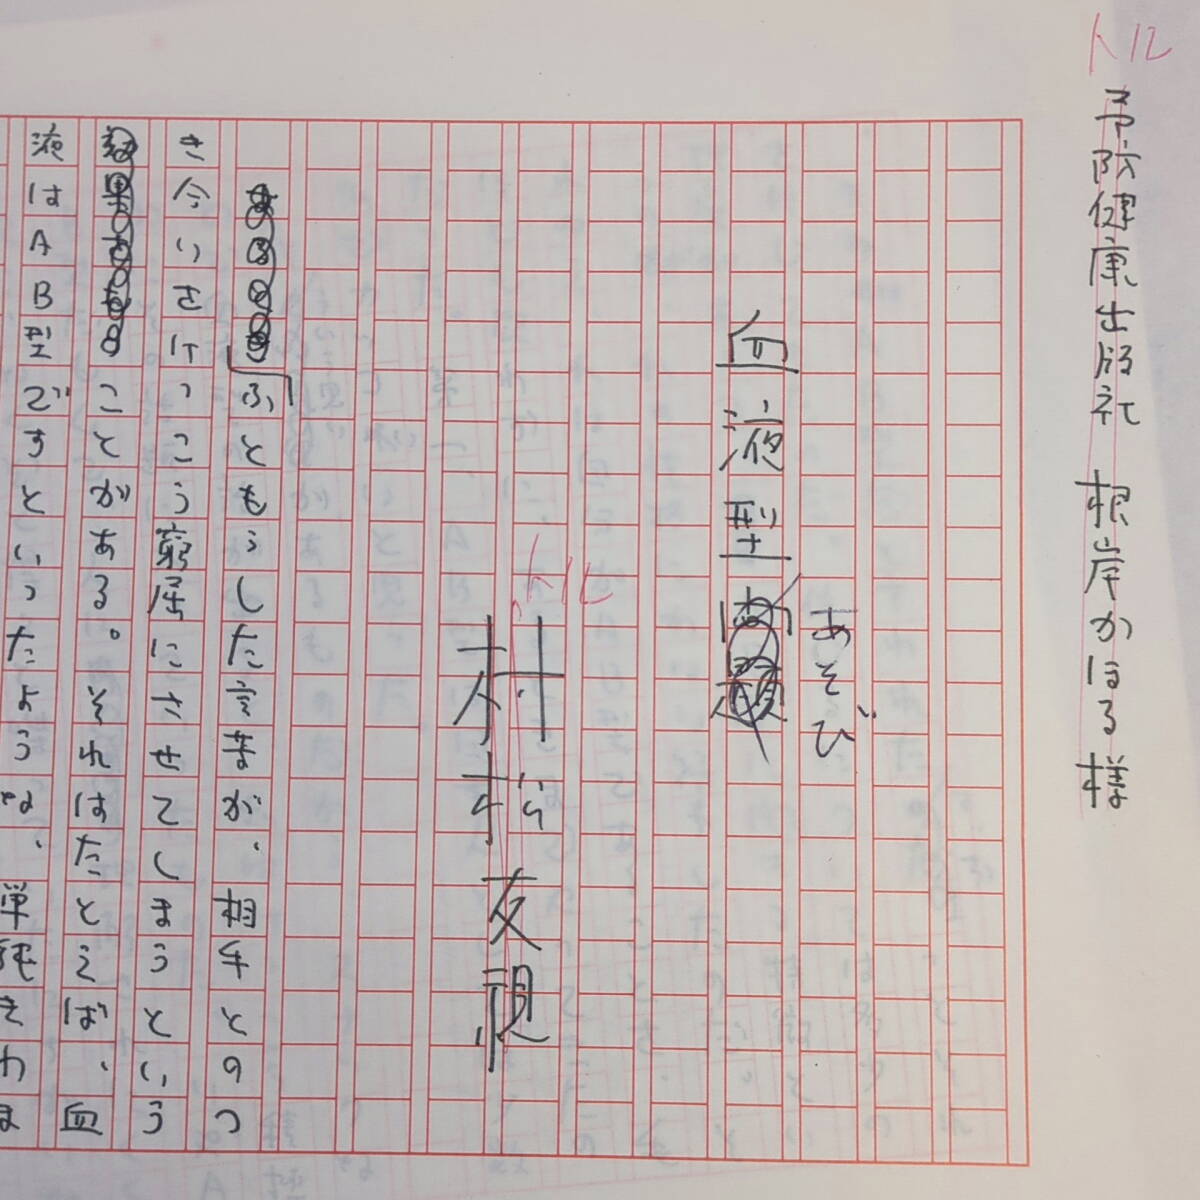 トル
予防健康出版社 根岸かほる様
血液型あそび
トル
村松友視
ふともらした言葉が、相手とのつ
き合いをけっこう窮屈にさせてしまうという
ことがある。それはたとえば、血
液はAB型ですといったような、単純きわま